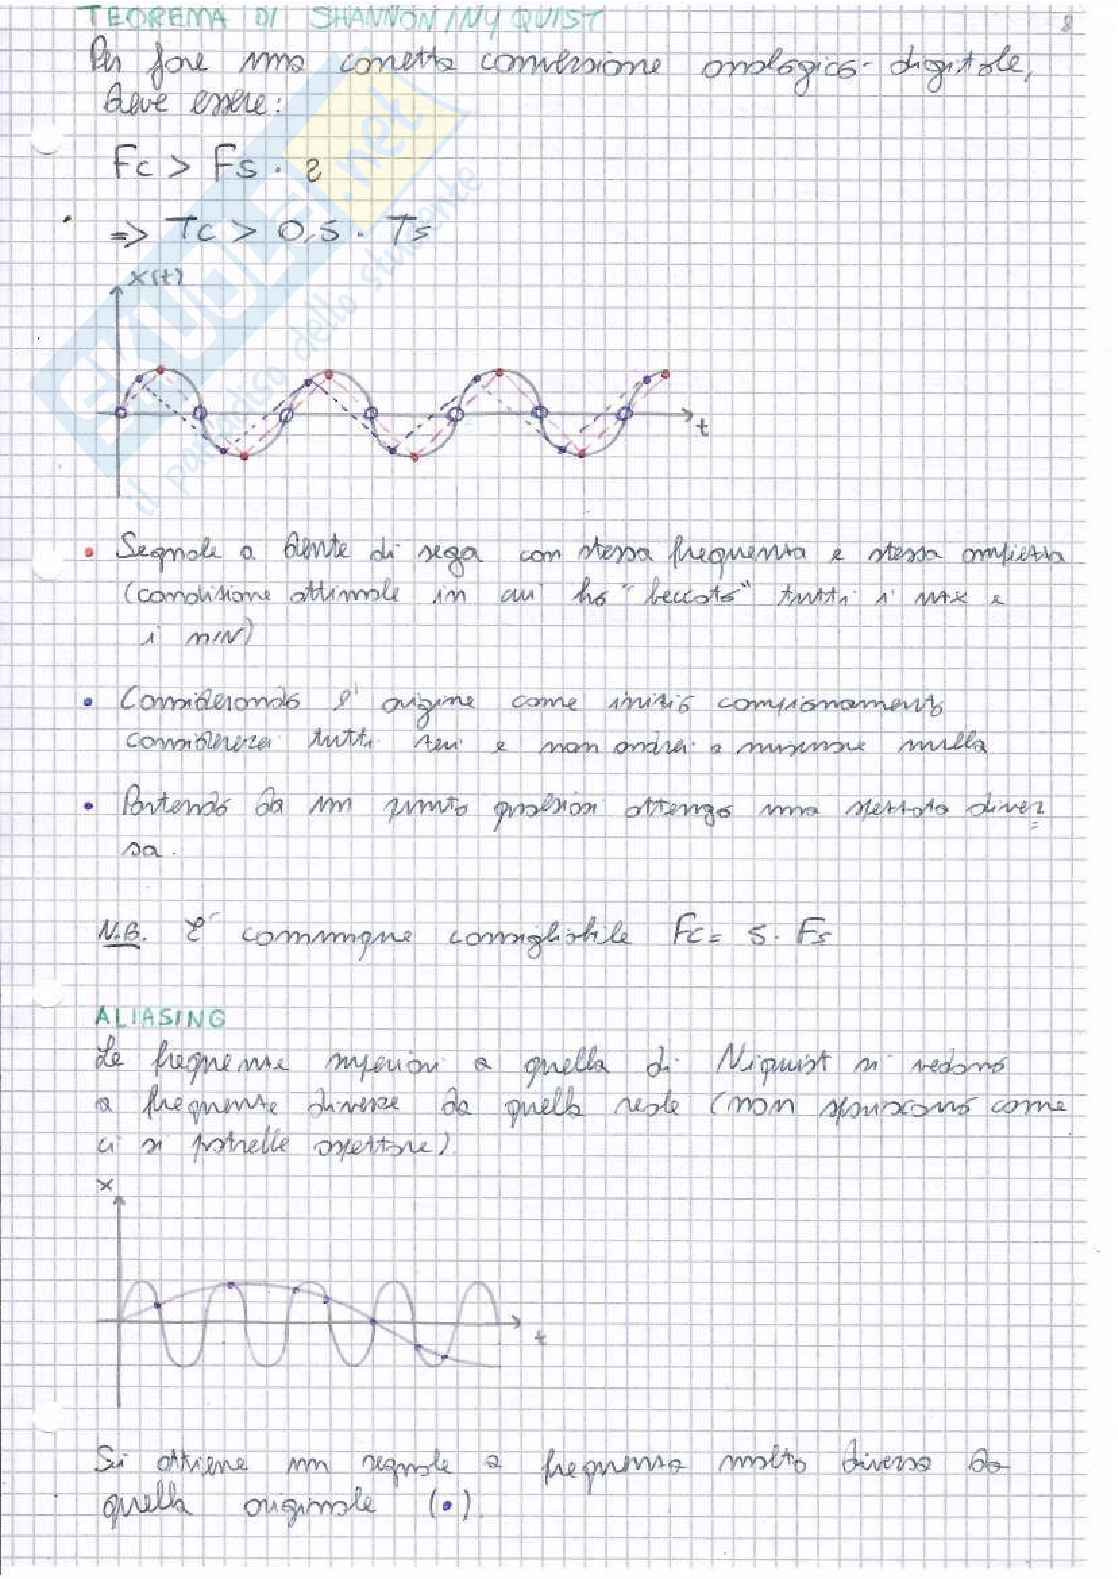 TEOREMA DI SHANNON/NYQUIST
8
Per fare una corretta conversione analogico-digitale,
deve essere:
Fc > Fs · 2
=> Tc > 0,5 · Ts
x(t)
t
• Segnale a dente di sega con stessa frequenza e stessa ampiezza
(condizione ottimale in cui ho "beccato" tutti i MAX e
i MIN)
• Considerando l'origine come inizio campionamento
considererei tutti zeri e non andrei a misurare nulla
• Partendo da un punto qualsiasi ottengo una spezzata diver=
sa.
N.B. E' comunque consigliabile Fc = 5 · Fs
ALIASING
Le frequenze superiori a quella di Niquist si vedono
a frequenze diverse da quella reale (non spariscono come
ci si potrebbe aspettare)
x
t
Si ottiene un segnale a frequenza molto diversa da
quella originale (•).
EKUELE.net
il paradiso dello studente